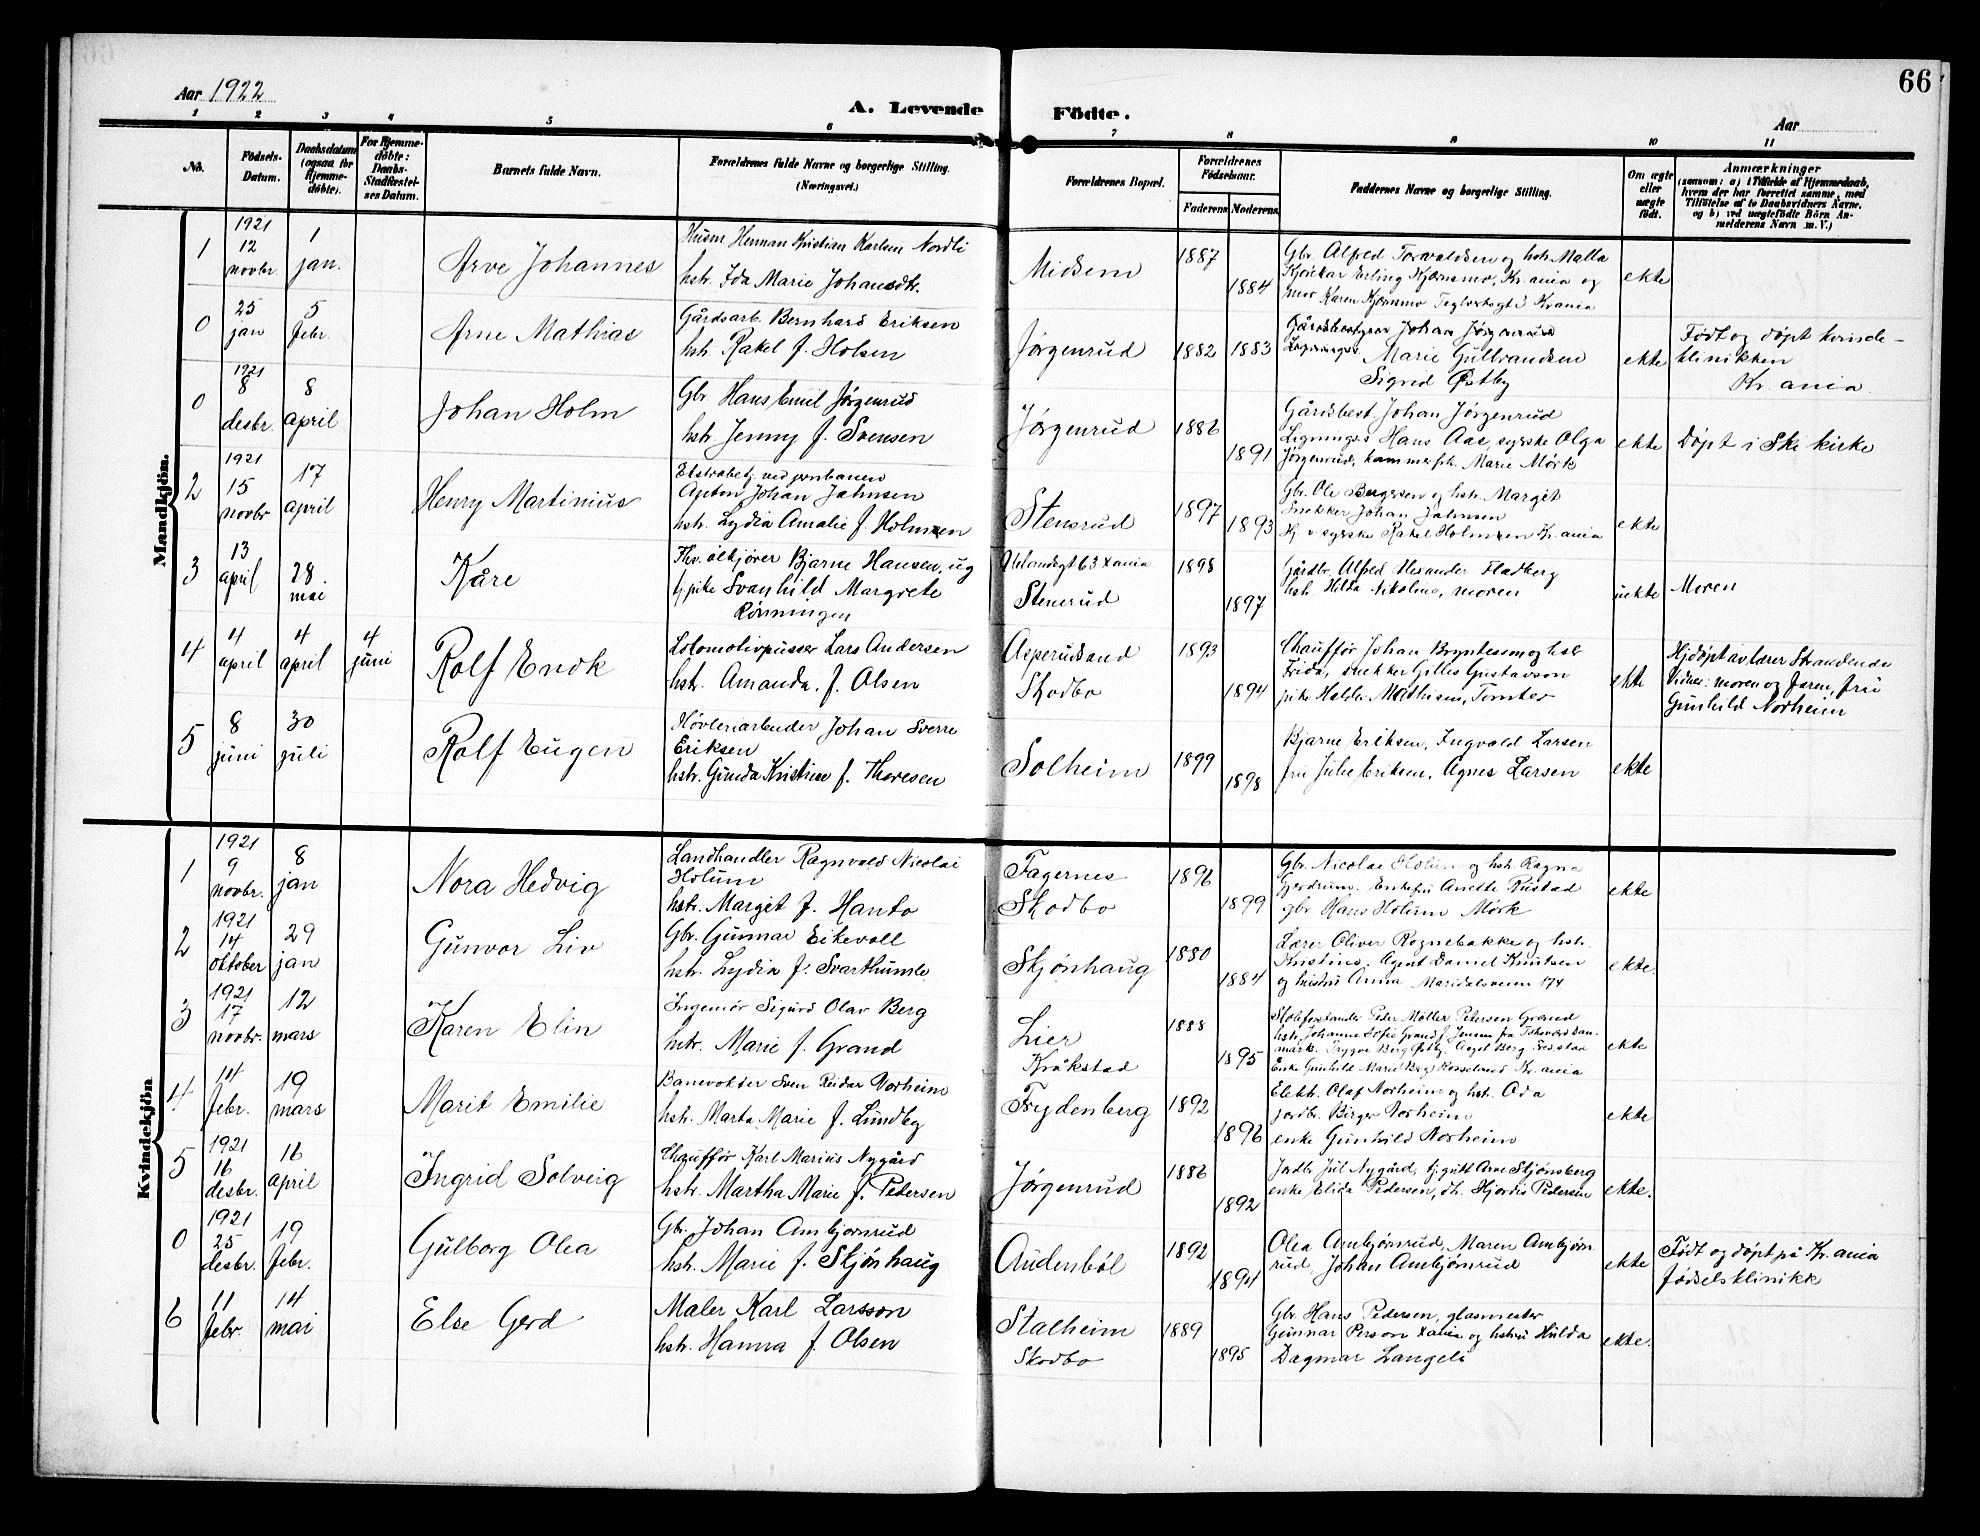 66
Aar 1922
A. Levende Födte.
Aar
1 2 3 4 5 6 7 8 9 10 11
No.
Födsels-Datum.
Daabsdatum (ogsaa for Hjemme-döbte).
For Hjemme-döbte: Daabs-Stadfæstel-ses Datum.
Barnets fulde Navn.
Forældrenes fulde Navne og borgerlige Stilling. (Næringsvei.)
Forældrenes Bopæl.
Forældrenes Födselsaar.
Faderens Moderens
Faddernes Navne og borgerlige Stilling.
Om ægte eller uægte födt.
Anmærkninger
(saasom: a) i Tilfælde af Hjemmedaab, hvem der har forrettet samme, med Tilföielse af to Daabsvidners Navne. og b) ved uægtefödte Börn An-melderens Navn m.V.)
Mandkjön.
1
1921 12 novbr.
1 jan.
Arve Johannes
Husm Herman Kristian Karlsen Nordli
hstr. Ida Marie Johansdtr.
Midsem
1887
1884
Gbr. Alfred Torvaldsen og hstr. Malla
Erling Kjærnsmo, Kr.ania og
mor Karen Kjærnsmo Kr.ania
ekte
0
25 jan
5 febr.
Arne Mathias
Gårdsarb. Bernhard Eriksen
hstr. Rakel f. Holsen
Jørgenrud
1882
1883
Johan Jørgenrud
Marie Gulbrandsen
Sigrid Østby
ekte
Født og døpt kvinde-
klinikken
Kr.ania
0
1921 8 desbr.
8 april
Johan Holm
Gbr Hans Emil Jørgenrud
hstr. Jenny f. Svensen
Jørgenrud
1886
1891
Gårdsbest. Johan Jørgenrud
Lignings.s Hans Aas, sygeske Olga
Jørgenrud, Marie Mørk
ekte
Døpt i Ski kirke
2
1921 15 novbr
17 april
Henry Martinius
Ekstrabetj. ved jernbanen
Anton Johan Jahnsen
hstr. Lydia Amalie f. Holmsen
Stensrud
1897
1893
Gbr. Ole Bergersen og hstr. Margit
Snekker Johan Jahnsen
sygeske Rakel Holmsen Kr.ania
ekte
3
13 april
28. mai
Kåre
Fhv. ølkjører Bjarne Hansen, ug
tj.pike Svanhild Margrete
Rønningen
63 Xania
Stensrud
1898
1897
Gårdbr. Alfred Alexander Fladberg
hst. Hilda Nikoline, moren
uekte
Moren
4
4 april
4 april
4 juni
Rolf Endk
Lokomotivpusser Lars Andersen
hstr. Amanda. f. Olsen
Asperudsand
Skodbo
1893
1894
Chauffør Johan Bryntesson og hstr
Frida, snekker Gilles Gustavson
pike Halda Mathisen, Tomter
ekte
Hjdøpt av lærer Strandende
Vidner: moren og faren, fru
Gunhild Norheim
5
8 juni
30 juli
Rolf Eugen
Høvleriarbeider Johan Sverre
Eriksen
hstr. Gunda Kristine f. Thoresen
Solheim
1899
1898
Bjarne Eriksen, Ingvald Larsen
fru Julie Eriksen, Agnes Larsen
ekte
Kvindekjön
1
1921 9 novbr.
8 jan
Nora Hedvig
Landhandler Ragnvald Nicolai
Holum
hstr. Margit f. Hanto
Fagernes
Skodbo
1896
1899
Gbr. Nicolai Holum og hstr. Ragna
Gjerdrum. Enkefru Anette Rustad
gbr. Hans Holum Mörk
ekte
2
1921 14 oktober
29 jan
Gunvor Liv
Gbr. Gunnar Eikevoll
hstr. Lydia f. Svarthumle
Skjønhaug
1880
1884
Lærer Oliver Rognebakke og hstr.
Kristine. Agent Daniel Knutsen
og hustru Anna Maridalsveien 174
ekte.
3
1921 17 novbr.
12 mars
Karen Elin
Ingeniør Sigurd Olav Berg
hstr. Marie f. Grand
Lier
Kråkstad
1888
1895
Skoleforstander Peder Møller Petersen Grand
hstr. Johanne Sofie Grand f. Jensen fra Dan-
mark. Trygve Berg Østby. Aagot Berg
Enke Gunhild Marie Berg Kr.ania
ekte
4
14 febr.
19 mars
Marit Emilie
Banevokter Sven Reidar Norheim
hstr. Marta Marie f. Lundby
Frydenberg
1892
1896
Elektr. Olaf Norheim og hst. Oda
jordbr. Birger Norheim
enke Gunhild Norheim
ekte
5
1921 16 desbr.
16 april
Ingrid Solveig
Chauffør Karl Marius Nygård
hstr. Martha Marie f. Petersen
Jørgenrud
1886
1892
Jordbr Jul Nygård, tj.gutt Arne Stjønsberg
enke Elida Pedersen, dtr. Hjordis Pedersen
ekte.
0
1921 25 desbr.
19 febr.
Gulborg Olea
Gbr. Johan Ambjørnrud
hstr. Marie f. Skjønhaug
Audenbøl
1892
1894
Olea Ambjørnrud, Maren Ambjørn
rud, Johan Ambjørnrud
ekte
Født og døpt på Kr.ania
fødselsklinikk
6
11 febr.
14 mai
Else Gerd
Maler Karl Larsson
hstr. Hanna f. Olsen
Stalheim
Skodbo
1889
1895
Gbr. Hans Pedersen, glasmester
Gunnar Person Xania og hstru Hulda
Dagmar Langeli
ekte.